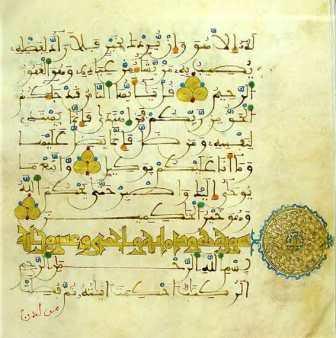 له إلا هو وإن يردك بخير فلا راد لفضله
يصيب به من يشاء من عباده وهو الغفور
الرحيم قل يأيها الناس قد جاءكم
الحق من ربكم فمن اهتدى فإنما يهتدي
لنفسه ومن ضل فإنما يضل عليها
وما أنا عليكم بوكيل واتبع ما
يوحى إليك واصبر حتى يحكم الله
وهو خير الحكمين
سورة هود
بسم الله الرحمن الرحيم
الر كتب أحكمت ءايته ثم فصلت
من لدن